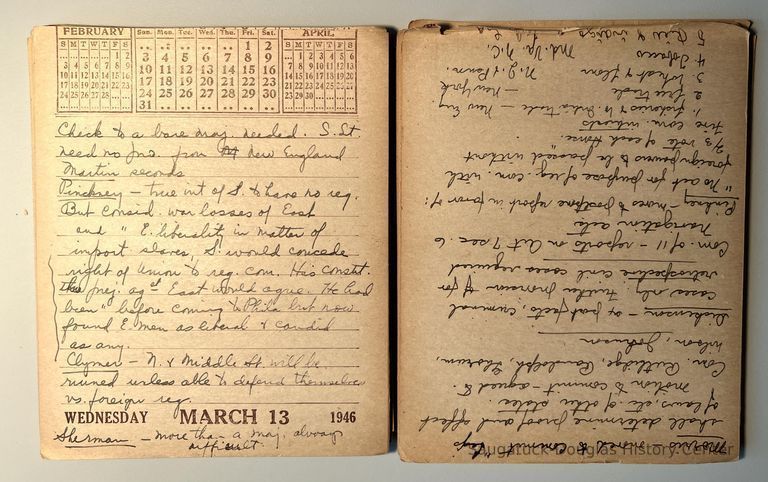 FEBRUARY
S M T W T F S
1 2
3 4 5 6 7 8 9
10 11 12 13 14 15 16
17 18 19 20 21 22 23
24 25 26 27 28
Sun. Mon. Tue. Wed. Thu. Fri. Sat.
1 2
3 4 5 6 7 8 9
10 11 12 13 14 15 16
17 18 19 20 21 22 23
24 25 26 27 28 29 30
31
APRIL
S M T W T F S
1 2 3 4 5 6
7 8 9 10 11 12 13
14 15 16 17 18 19 20
21 22 23 24 25 26 27
28 29 30
Check to a bare maj. needed. S. St.
need no from New England
Martin seconds
Pinckney – true int of S. to have no reg.
But consid. war losses of East
and " E. liberality in matter of
import slaves, S. would concede
right of union to reg. com. His const.
prej. agst East would agree. He had
been " before coming to Phila but now
found E. men as liberal & candid
as any.
Clymer – N. & Middle St. will be
ruined unless able to defend themselves
vs. foreign reg.
WEDNESDAY MARCH 13 1946
Sherman – more than a maj. always
difficult.
Morris – moved to commit
shall determine proof and effect
of laws etc. of other states.
Motion to commit – agreed to.
Com. Rutledge, Randolph, Gorham,
Wilson, Johnson
Dickenson – ex post facto, criminal
cases only. Further provision for
retrospective civil cases required
Com. of 11 reports on Art 7 sec. 6
Navigation acts
Pinckney – moves to postpone report in favor of:
"No act for purpose of reg. com. with
foreign powers to be passed without
2/3 vote of each House.
Five com. interests
1. fisheries & W. India trade – New Eng.
2. free trade – New York
3. Wheat & flour N.J. & Penn.
4 Tobacco Md. Va. N.C.
5 Rice & indigo
Saugatuck-Douglas History Center